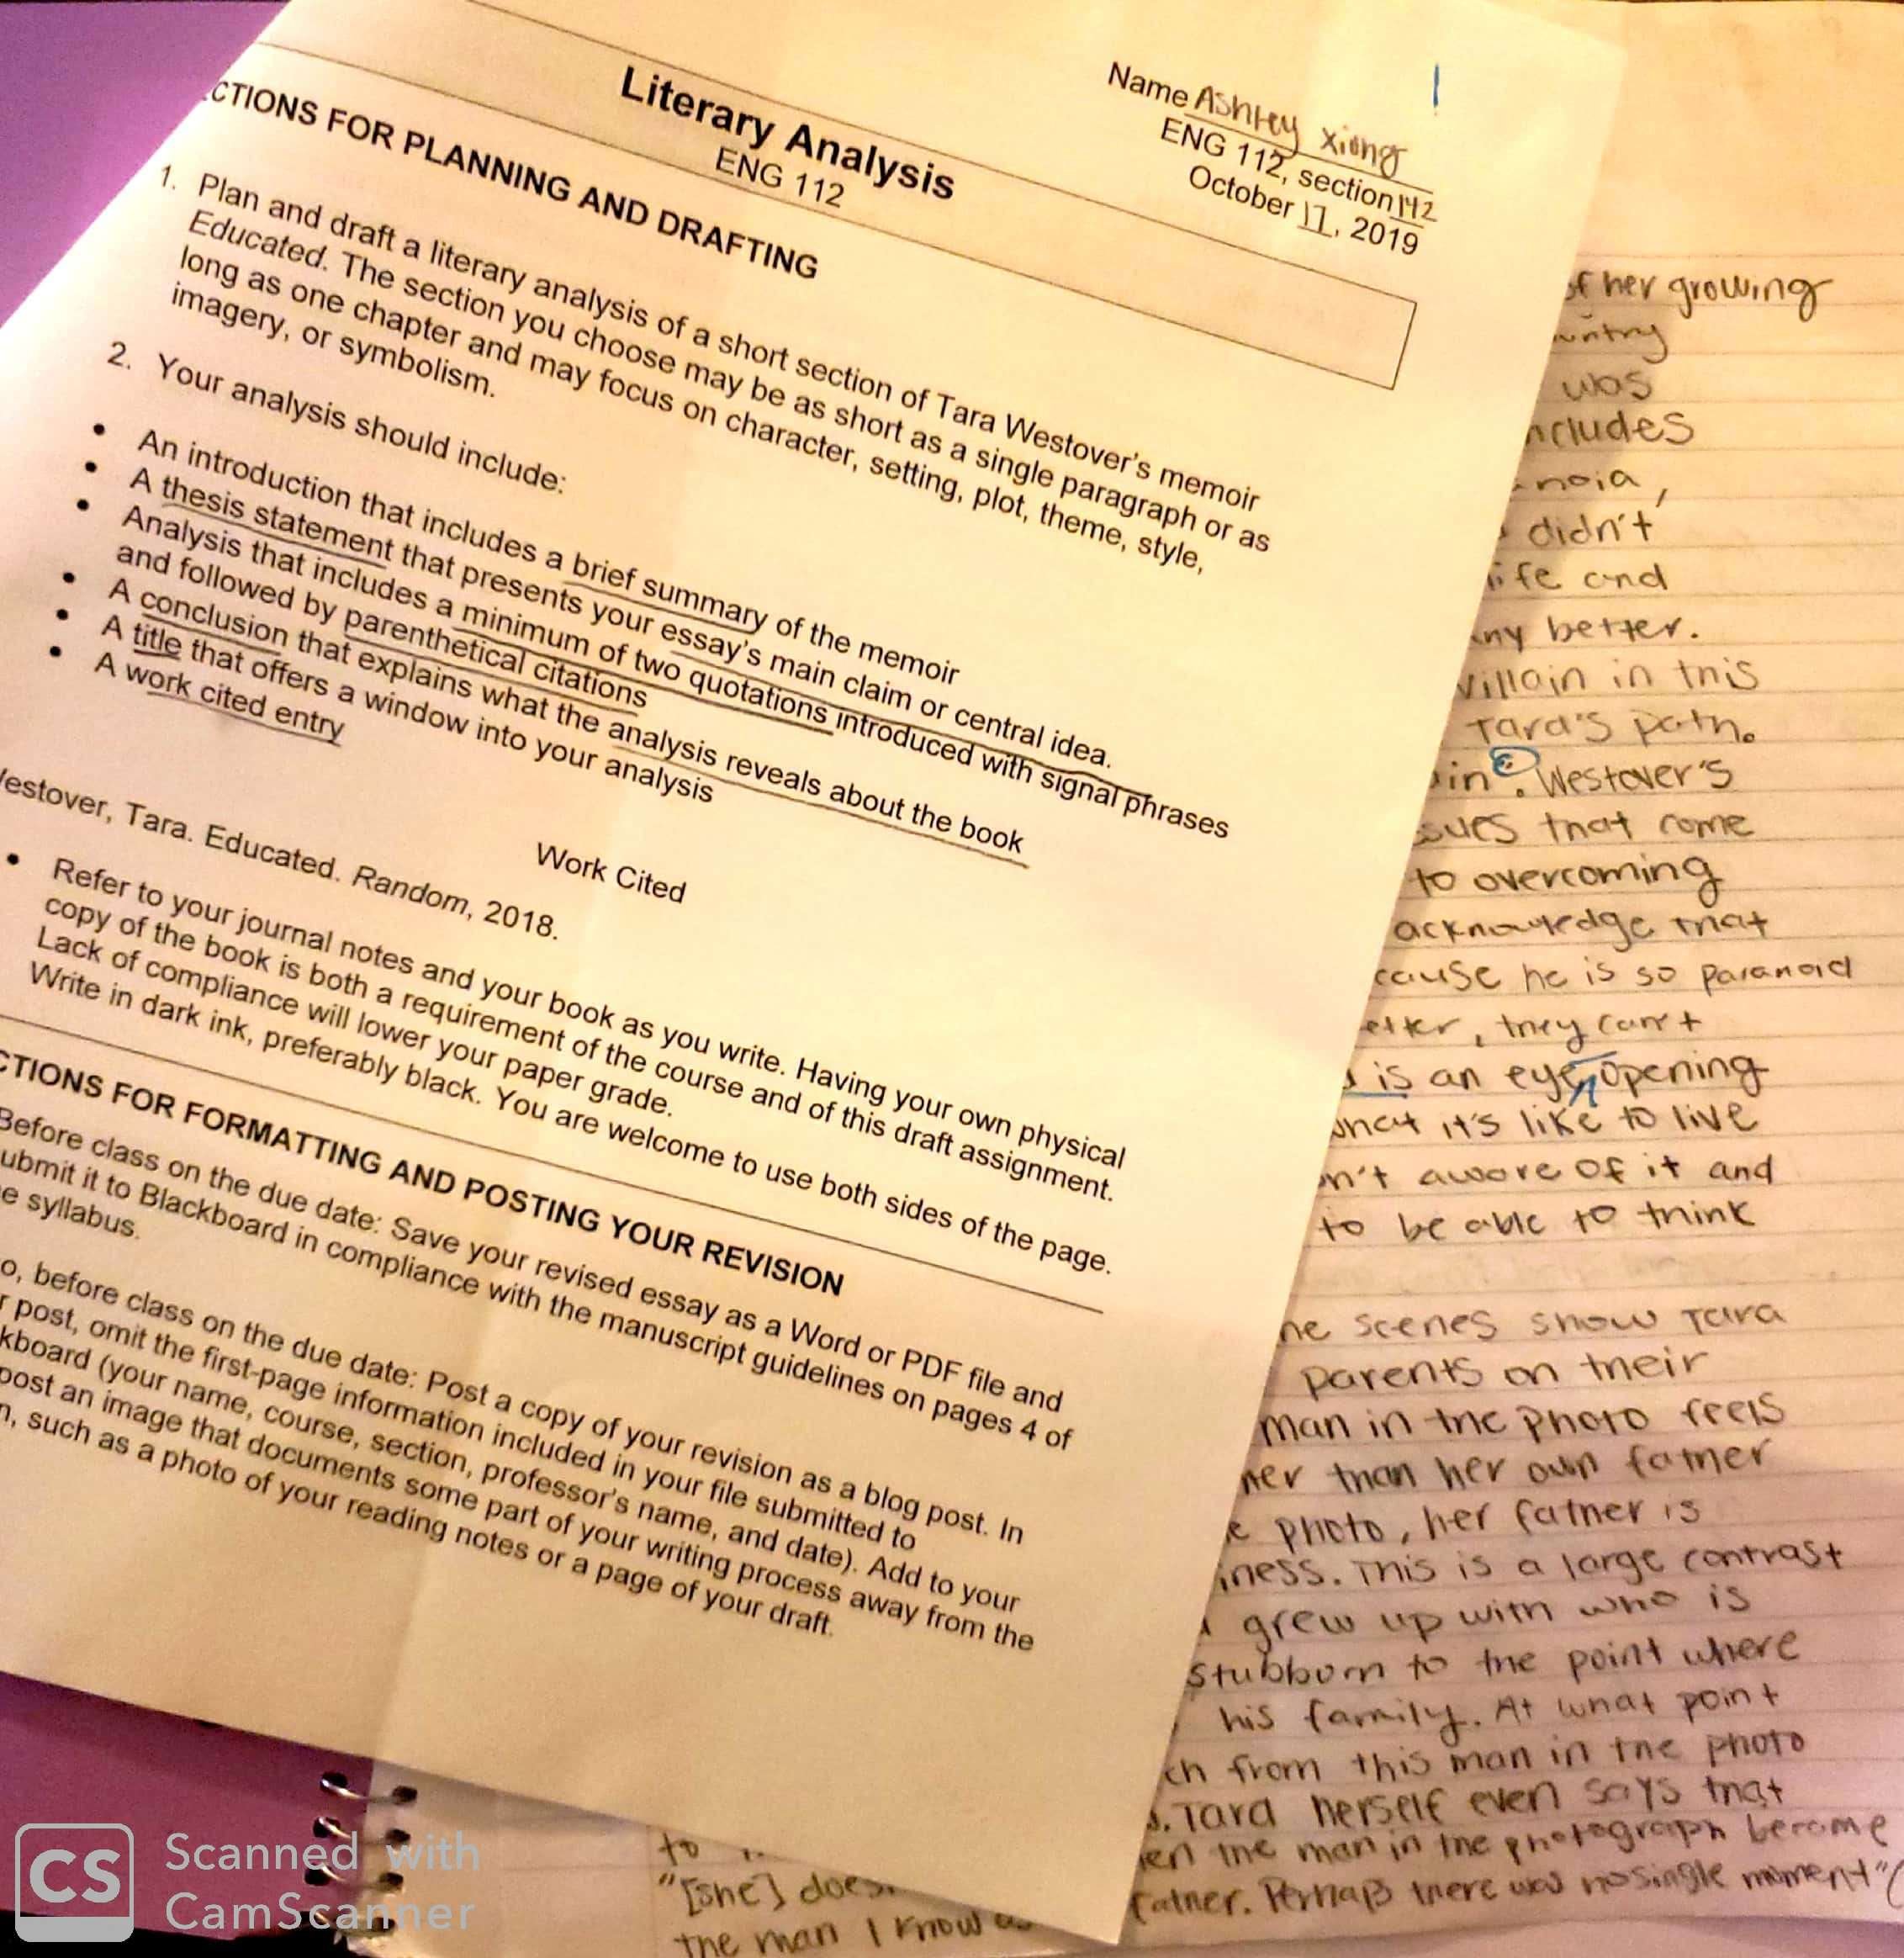 Name Ashley Xiong
ENG 112, section 142
October 17, 2019
Literary Analysis
ENG 112
CTIONS FOR PLANNING AND DRAFTING
1. Plan and draft a literary analysis of a short section of Tara Westover's memoir
Educated. The section you choose may be as short as a single paragraph or as
long as one chapter and may focus on character, setting, plot, theme, style,
imagery, or symbolism.
2. Your analysis should include:
• An introduction that includes a brief summary of the memoir
• A thesis statement that presents your essay's main claim or central idea.
• Analysis that includes a minimum of two quotations introduced with signal phrases
and followed by parenthetical citations
• A conclusion that explains what the analysis reveals about the book
• A title that offers a window into your analysis
• A work cited entry
Work Cited
estover, Tara. Educated. Random, 2018.
• Refer to your journal notes and your book as you write. Having your own physical
copy of the book is both a requirement of the course and of this draft assignment.
Lack of compliance will lower your paper grade.
Write in dark ink, preferably black. You are welcome to use both sides of the page.
CTIONS FOR FORMATTING AND POSTING YOUR REVISION
Before class on the due date: Save your revised essay as a Word or PDF file and
ubmit it to Blackboard in compliance with the manuscript guidelines on pages 4 of
e syllabus.
o, before class on the due date: Post a copy of your revision as a blog post. In
r post, omit the first-page information included in your file submitted to
kboard (your name, course, section, professor's name, and date). Add to your
post an image that documents some part of your writing process away from the
n, such as a photo of your reading notes or a page of your draft.
of her growing
untry
was
ncludes
noia,
didn't
life and
any better.
villain in this
Tara's path.
in. Westover's
sues that come
to overcoming
acknowledge that
cause he is so paranoid
etter, they can't
is an eye opening
what it's like to live
n't aware of it and
to be able to think
he scenes show Tara
parents on their
man in the photo feels
her than her own father
e photo, her father is
iness. This is a large contrast
grew up with who is
stubborn to the point where
his family. At what point
ch from this man in the photo
. Tara herself even says that
en the man in the photograph become
father. Perhaps there was no single moment" (
to
"[she] does
the man I know as
CS Scanned with
CamScanner